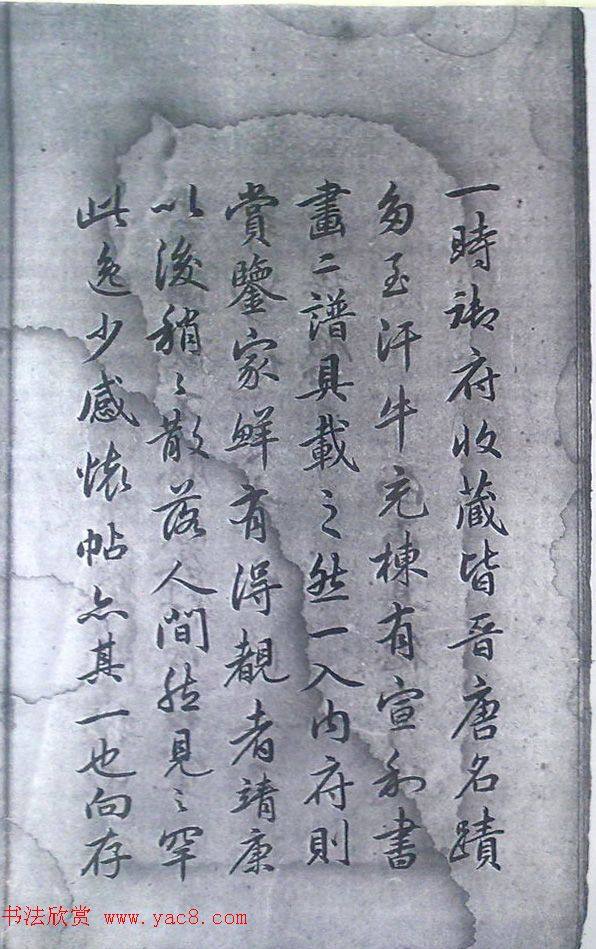 一時御府收藏皆晉唐名蹟
多至汗牛充棟有宣和書
畫二譜具載之然一入内府則
賞鑒家鮮有得覩者靖康
以後稍〻散落人間然見之罕
此逸少感懷帖亦其一也向存
书法欣赏 www.yac8.com